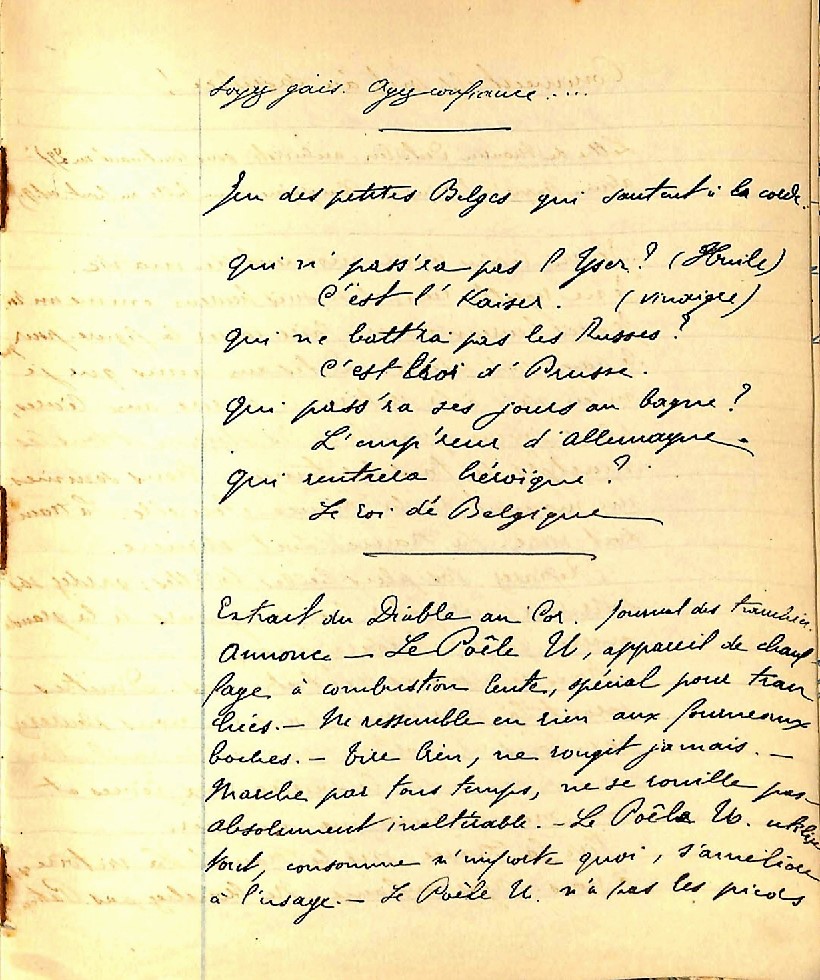 Soyez gais. Ayez confiance.....
Jeu des petites Belges qui sautent à la corde.
Qui n' pass'ra pas l'Yser? (Huile)
C'est l' Kaiser. (vinaigre)
Qui ne batt'ra pas les Russes?
C'est l'roi d' Prusse.
Qui pass'ra ses jours au bagne?
L'emp'reur d'Allemagne.
Qui rentrera héroïque?
Le roi de Belgique
Extrait du Diable au Cor. Journal des tranchées.
Annonce — Le Poêle U, appareil de chauf-
fage à combustion lente, spécial pour tran
chées. — Ne ressemble en rien aux fourneaux
boches. — Tire bien, ne rougit jamais. —
Marche par tous temps, ne se rouille pas
absolument inaltérable. — Le Poêle U. utilise
tout, consomme n'importe quoi, s'améliore
à l'usage. — Le Poêle U. n'a pas les pieds